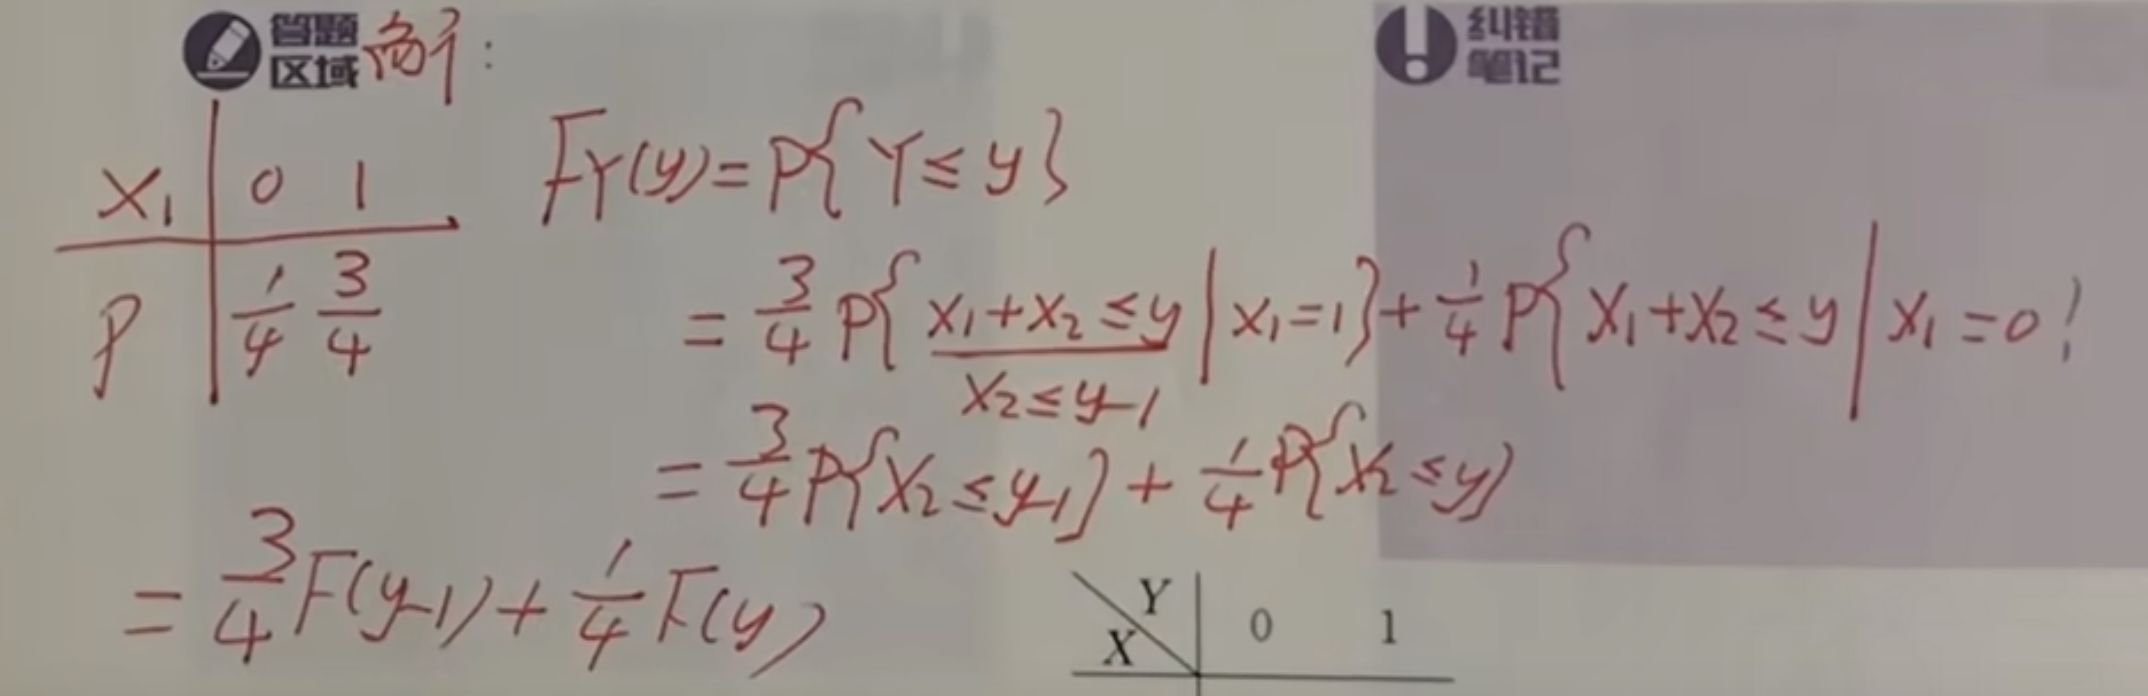 答题
区域
解:
纠错
笔记
X₁ | 0 1
P | 1/4 3/4
F_Y(y)=P{Y≤y}
=3/4 P{X₁+X₂≤y|X₁=1}+1/4 P{X₁+X₂≤y|X₁=0}
X₂≤y-1
=3/4 P{X₂≤y-1}+1/4 P{X₂≤y}
=3/4 F(y-1)+1/4 F(y)
Y 0 1
X